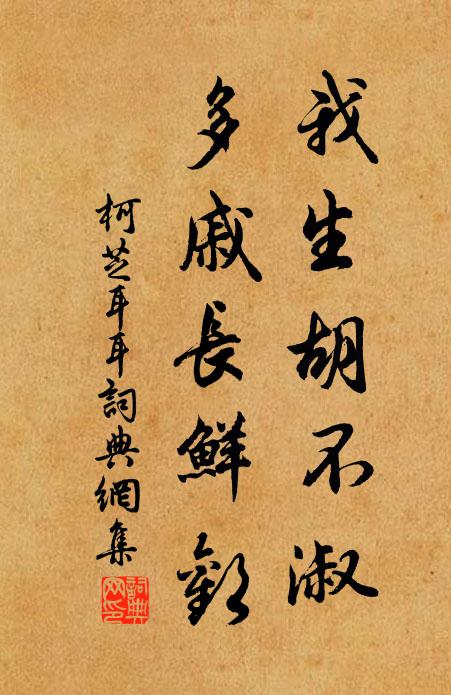 我生胡不淑
多戚長鮮歡
柯芝耳耳詞典網集
詞典